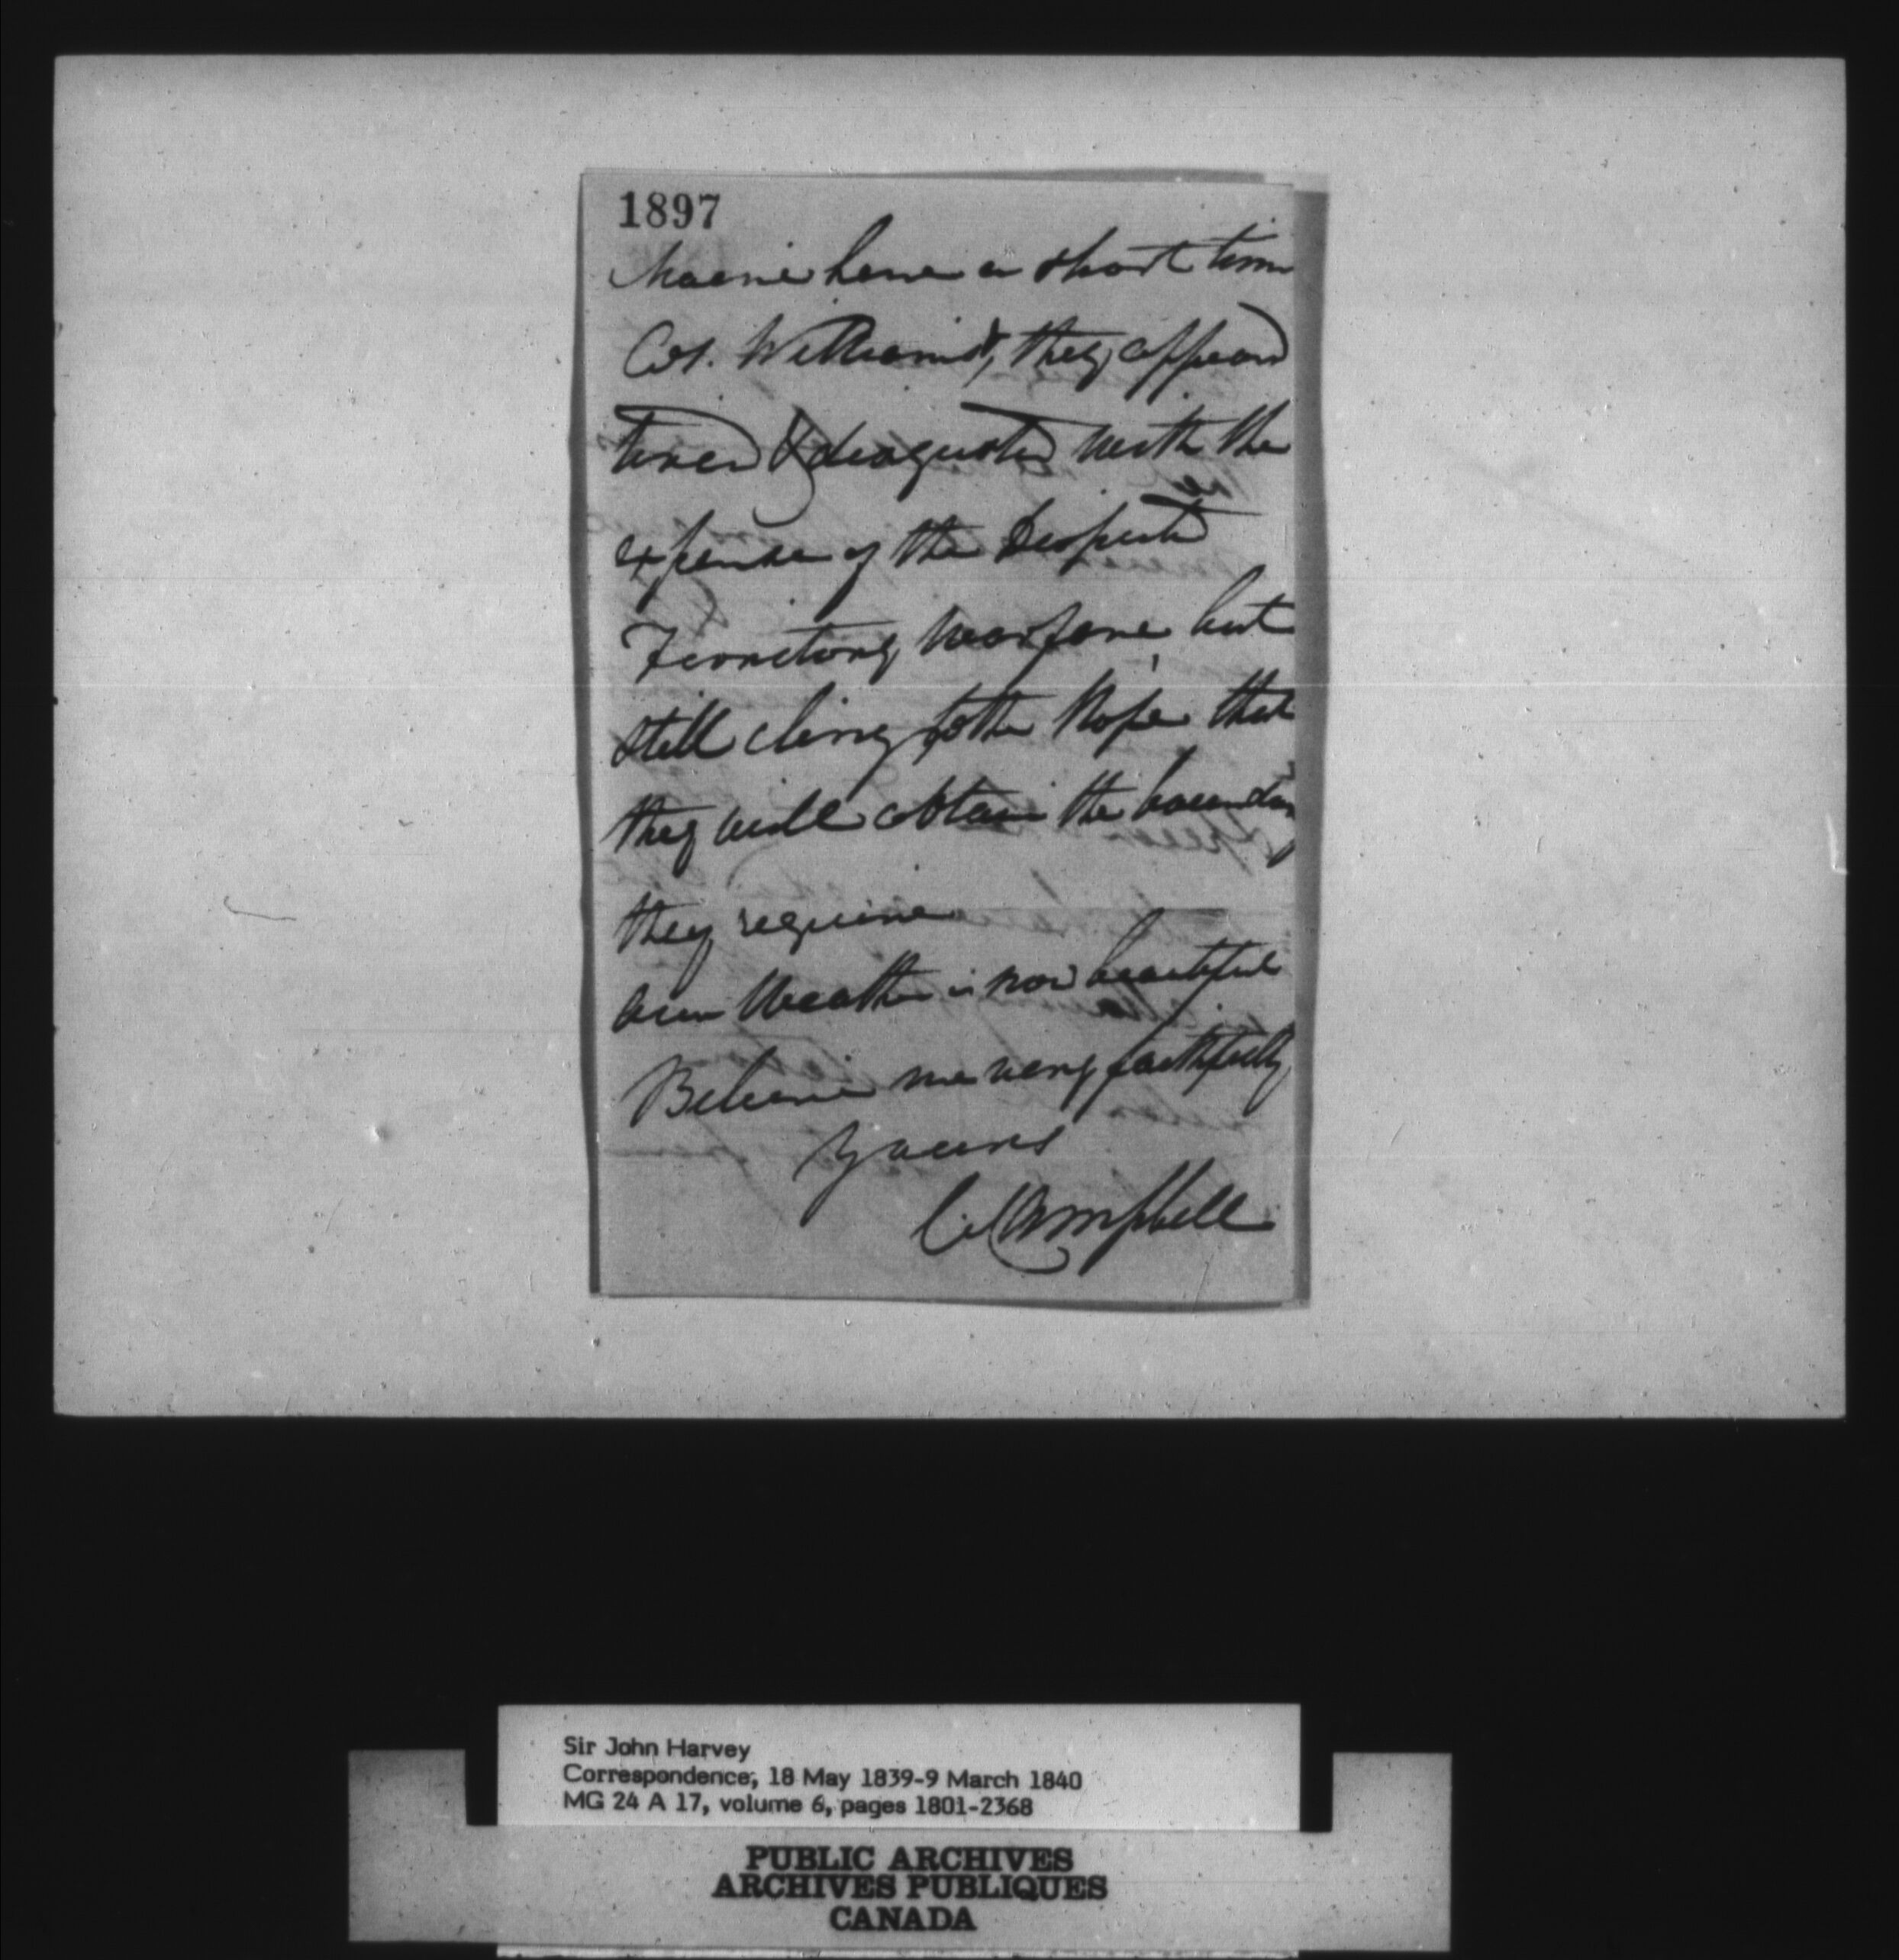 1897
Maine here a short time
Col. Williams, they appeard
tired & disgusted with the
expense of the Disputed
Territory Warfare, but
still cling to the hope that
they will obtain the boundary
they require
our Weather is now beautiful
Believe me very faithfully
yours
C. Campbell
Sir John Harvey
Correspondence, 18 May 1839-9 March 1840
MG 24 A 17, volume 6, pages 1801-2368
PUBLIC ARCHIVES
ARCHIVES PUBLIQUES
CANADA